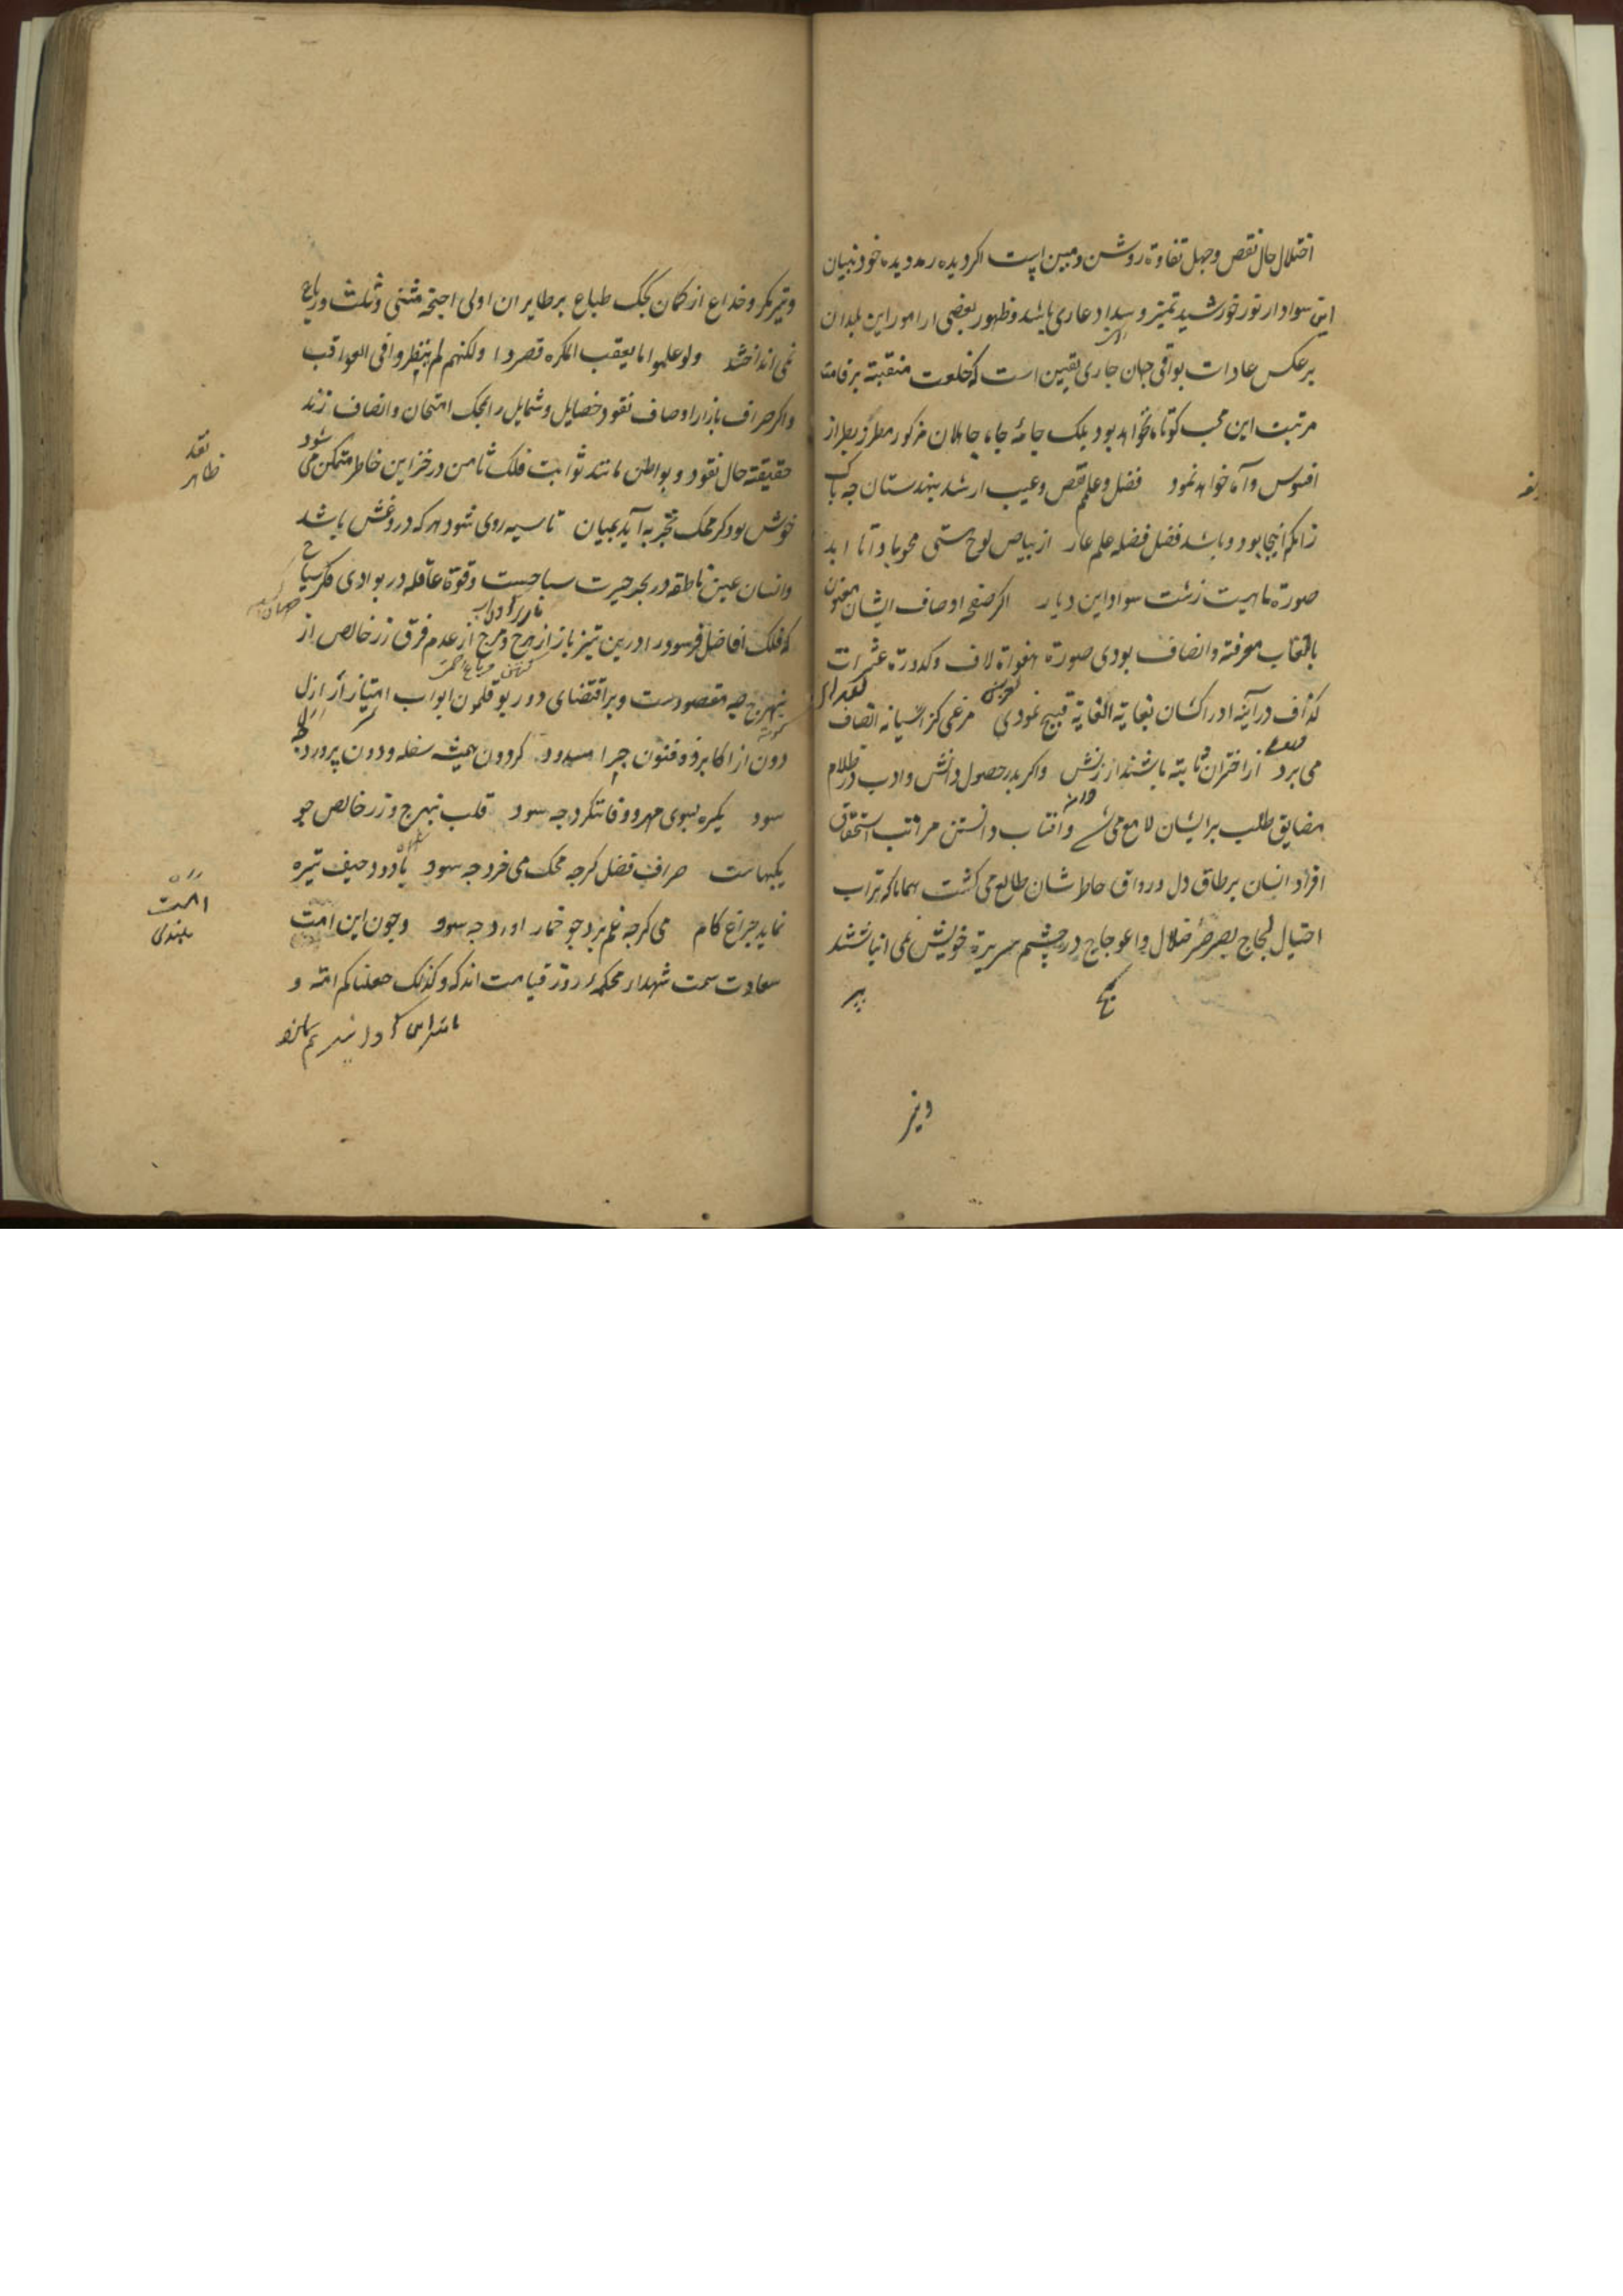 اختلال حال نقص و جهل تفاوة روشن و مبین است اگر دیده رمد دیده خود نبیان
این سواد از نور خورشید تمیز و سداد عاری باشد و ظهور بعضی از امور این بلدان
بر عکس عادات بواقی جهان جاری یقین است که خلعت منقبة بر قامت
مرتبت این محب کوتاه نخواهد بود بلک جامهٔ جاه جاهلان مذکور مطرز بطراز
افسوس و آه خواهد نمود فضل و علم نقص و عیب ار شد بهندستان چه باک
زانکم اینجا بود و باشد فضل فضله علم عار از بیاض لوح هستی محو بادا تا ابد
صورة ماهیت زشت سواد این دیار اگر صفحه اوصاف ایشان معنون
بالقاب معرفة و انصاف بودی صورة هفواة لاف و کدورة عثرات
کذاف در آینه ادراکشان بغایة الغایة قبیح نمودی مرغی کز آشیانه انصاف
می برد از اختران ثابته باشند ارزنش و اگر بدر حصول دانش و ادب در ظلام
مضایق طلب بر ایشان لامع می و آفتاب دانستن مراتب استحقاق
افراد انسان بر طاق دل و رواق خاطرشان طالع می کشت همانا که تراب
احتیال لجاج بصرصر ضلال و اعوجاج در چشم سریرة خویش نمی انباشتند
و تیر
و تیر مکر و خداع از کمان کجک طباع بر طایران اولی اجنحة مثنی و ثلث و رباع
نمی انداختند ولو علموا ما یعقب المکره قصروا ولکنهم لم ینظروا فی العواقب
و اگر صراف بازار اوصاف نقود خصایل و شمایل را بمحک امتحان و انصاف زند
حقیقة حال نقود و بواطن مانند ثوابت فلک ثامن در خزاین خاطر متمکن می شود
نقد
ظاهر
خوش بود کر محک تجربه آید بمیان تا سیه روی شود هر که دروغش باشد
و انسان عین ناطقه در بحر حیرت سباحست و قوة عاقله در بوادی فکر سیاح
که فلک افاضل فرسود را درین تیز بازار هرج و مرج از عدم فرق زر خالص از
نبهرج چه مقصودست و بر اقتضای دور بوقلمون ابواب امتیاز ارازل
دون از اکابر ذو فنون چرا مسدود کردون همیشه سفله و دون پرورد
سود یکره بسوی مهر و وفا ننکرد چه سود قلب نبهرج و زر خالص چو
یکبهاست صراف فضل کرچه محک می خرد چه سود با دود حیف تیره
نماید چراغ کام می کرچه غم برد چو خمار آورد چه سود و چون این امت
امت
بلندی
سعادت سمت شهدا محکمهٔ روز قیامت اند که و کذلک جعلناکم امة و